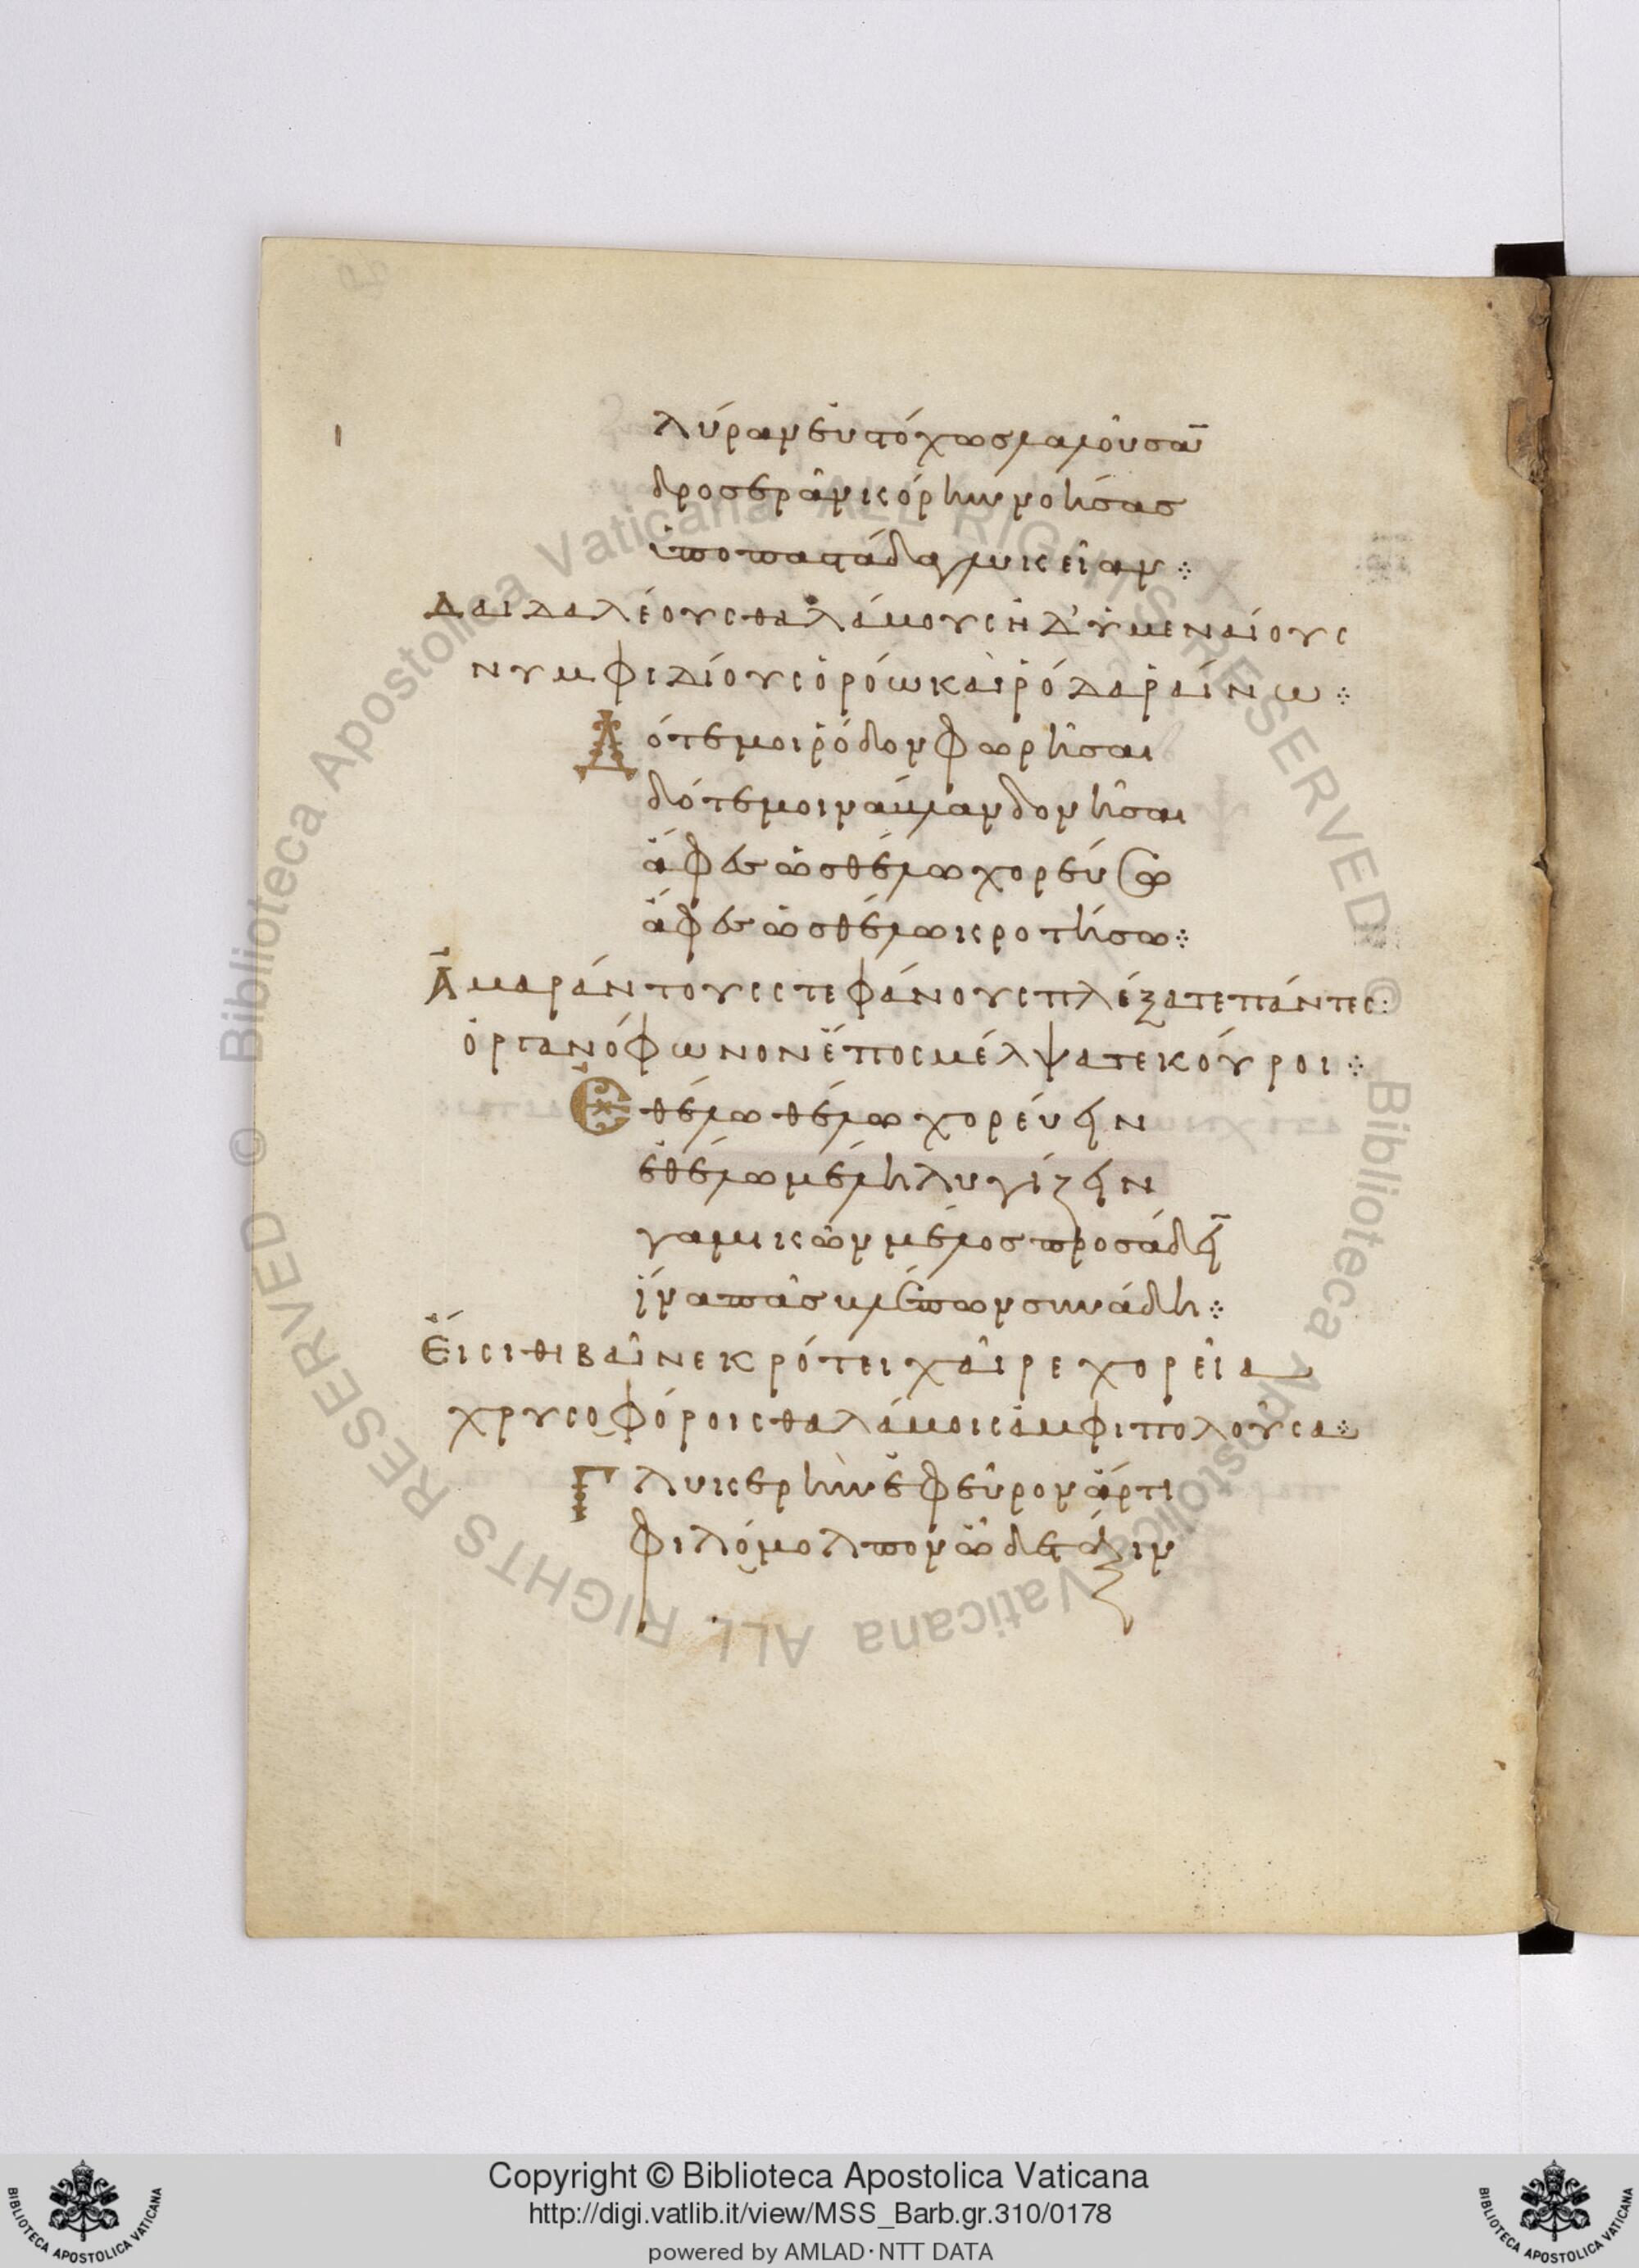 λύραν εὐτόχως λαλοῦσαν
δρος ἐρᾶν κόρην νοήσας
ὑποπαστάδα γλυκεῖαν ⁘
Δαιδαλέους θαλάμους ἠδ' ὑμεναίους
νυμφιδίους ὁρόω καὶ ῥόδα ῥαίνω ⁘
Δότε μοι ῥόδον φωρῆσαι
δότε μοι ναύμαν δονῆσαι
ἄφες ὡς θέλω χορεύσω
ἄφες ὡς θέλω κροτήσω ⁘
Ἀμαράντους στεφάνους πλέξατε πάντες :
ὀργανόφωνον ἔπος μέλψατε κούροι ⁘
Ἐθέλω θέλω χορεύειν
ἐθέλω μέλη λυγίζειν
γαμικῶν μέλος προσάδειν
ἵνα πᾶς βλέπων συνάδη ⁘
Εἴσιθι βαῖνε κρότει χαῖρε χορεία
χρυσοφόροις θαλάμοις ἀμφιπολοῦσα ⁘
Γλυκερὴν ἐφεῦρον ἄρτι
φιλόμολπον ὧδε τάξιν
Copyright © Biblioteca Apostolica Vaticana
http://digi.vatlib.it/view/MSS_Barb.gr.310/0178
powered by AMLAD·NTT DATA
BIBLIOTECA APOSTOLICA VATICANA
BIBLIOTECA APOSTOLICA VATICANA
© Biblioteca Apostolica Vaticana ALL RIGHTS RESERVED
© Biblioteca Apostolica Vaticana ALL RIGHTS RESERVED